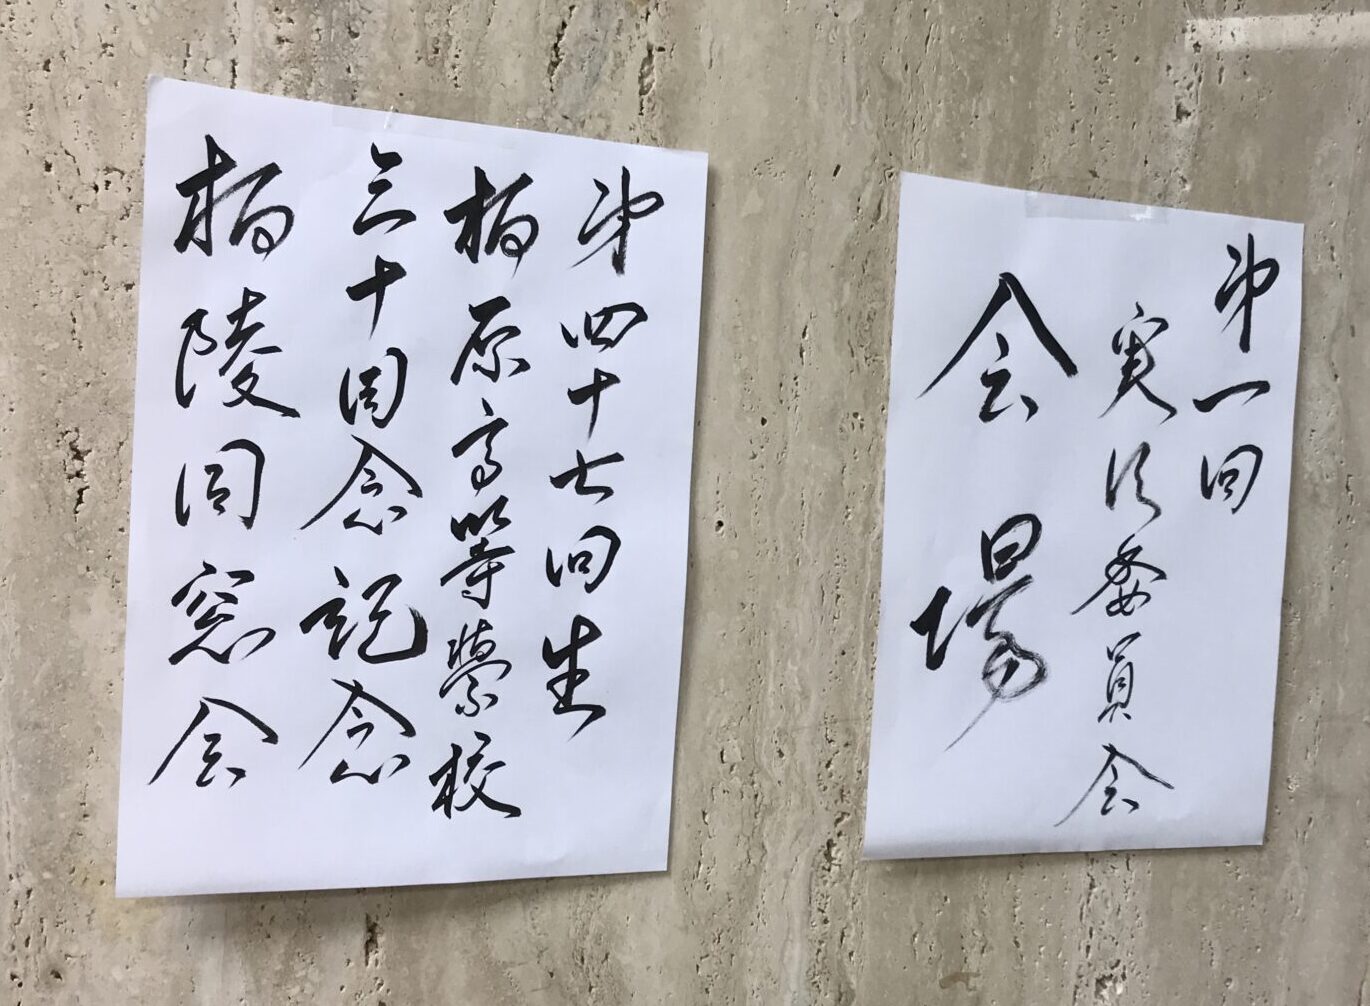 第四十七回生
柏原高等學校
三十周念記念
柏陵同窓会
第一回
実行委員会
会場